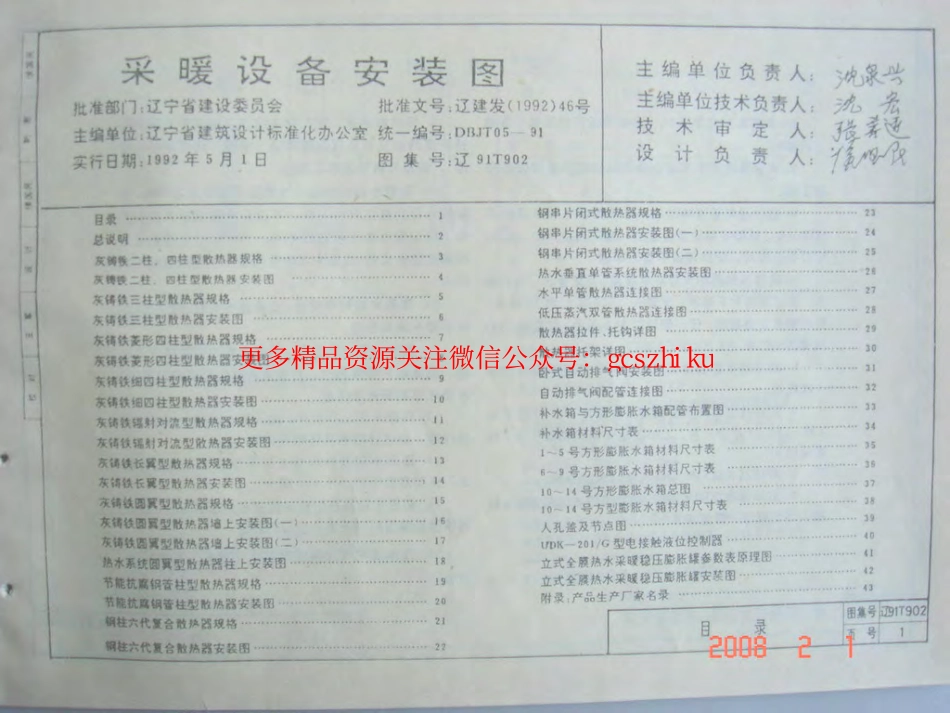 采暖设备安装图
批准部门:辽宁省建设委员会 批准文号:辽建发(1992)46号
主编单位:辽宁省建筑设计标准化办公室 统一编号:DBJT05—91
实行日期:1992年5月1日 图集号:辽91T902
主编单位负责人:
主编单位技术负责人:
技术审定人:
设计负责人:
目录 1
总说明 2
灰铸铁二柱、四柱型散热器规格 3
灰铸铁二柱、四柱型散热器安装图 4
灰铸铁三柱型散热器规格 5
灰铸铁三柱型散热器安装图 6
灰铸铁菱形四柱型散热器规格 7
灰铸铁菱形四柱型散热器安装图
灰铸铁细四柱型散热器规格 9
灰铸铁细四柱型散热器安装图 10
灰铸铁辐射对流型散热器规格 11
灰铸铁辐射对流型散热器安装图 12
灰铸铁长翼型散热器规格 13
灰铸铁长翼型散热器安装图 14
灰铸铁圆翼型散热器规格 15
灰铸铁圆翼型散热器墙上安装图(一) 16
灰铸铁圆翼型散热器墙上安装图(二) 17
热水系统圆翼型散热器柱上安装图 18
节能抗腐钢管柱型散热器规格 19
节能抗腐钢管柱型散热器安装图 20
钢柱六代复合散热器规格 21
钢柱六代复合散热器安装图 22
钢串片闭式散热器规格 23
钢串片闭式散热器安装图(一) 24
钢串片闭式散热器安装图(二) 25
热水垂直单管系统散热器安装图 26
水平单管散热器连接图 27
低压蒸汽双管散热器连接图 28
散热器拉件、托钩详图 29
托架详图 30
卧式自动排气阀安装图 31
自动排气阀配管连接图 32
补水箱与方形膨胀水箱配管布置图 33
补水箱材料尺寸表 34
1~5号方形膨胀水箱材料尺寸表 35
6~9号方形膨胀水箱材料尺寸表 36
10~14号方形膨胀水箱总图 37
10~14号方型膨胀水箱材料尺寸表 38
人孔盖及节点图 39
UDK—201/G型电接触液位控制器 40
立式全膜热水采暖稳压膨胀罐参数表原理图 41
立式全膜热水采暖稳压膨胀罐安装图 42
附录:产品生产厂家名录 43
更多精品资源关注微信公众号:gcszhiku
目录
图集号 辽91T902
页号 1
2008 2 1